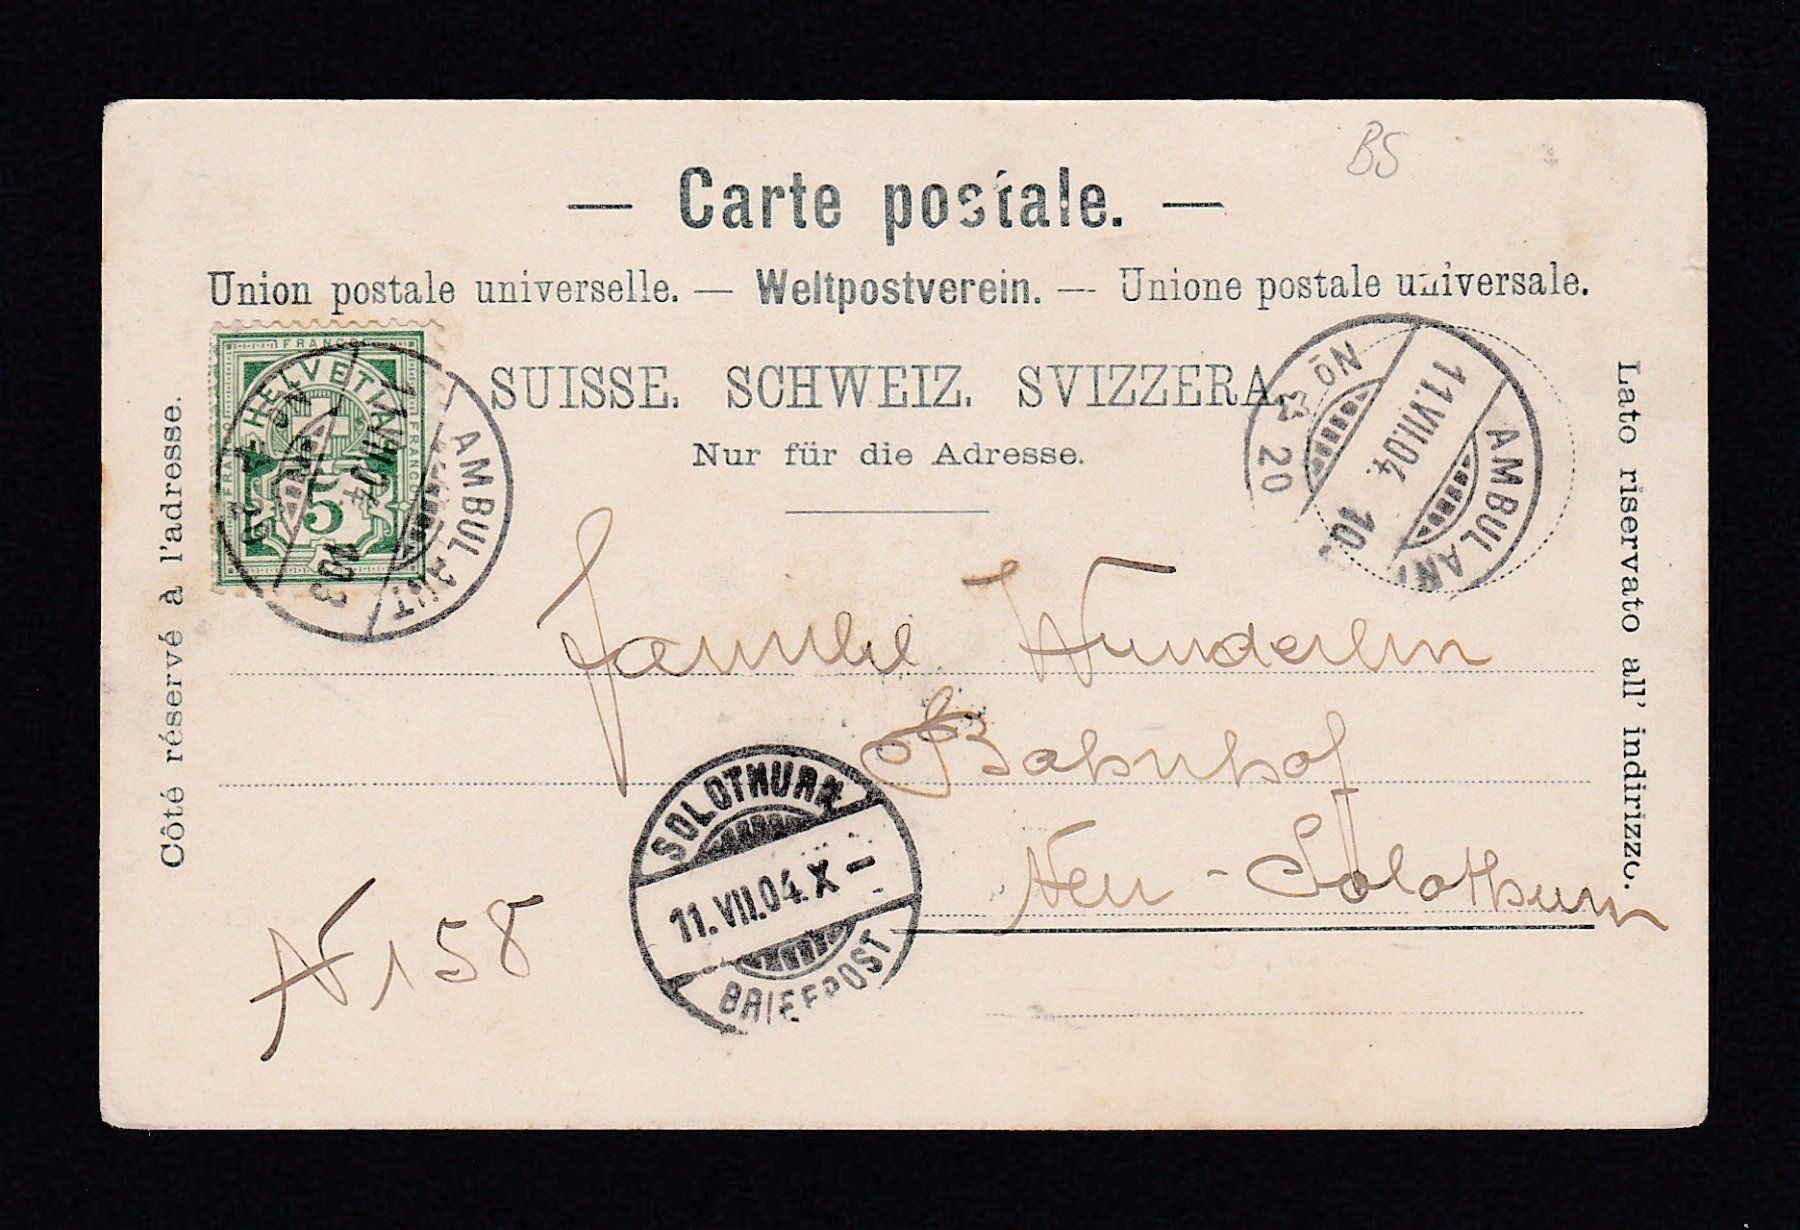 BS
— Carte postale. —
Union postale universelle. — Weltpostverein. — Unione postale universale.
SUISSE. SCHWEIZ. SVIZZERA.
Nur für die Adresse.
Côté réservé à l'adresse.
Lato riservato all' indirizzo.
FRANCO
HELVETIA
FRANCO
FRANCO
5
AMBULANT
11.VII.04
No 20
AMBULANT
11.VII.04. 10.
Familie Wunderlin
Bahnhof
Neu-Solothurn
N 158
SOLOTHURN
11.VII.04.X–
BRIEFPOST